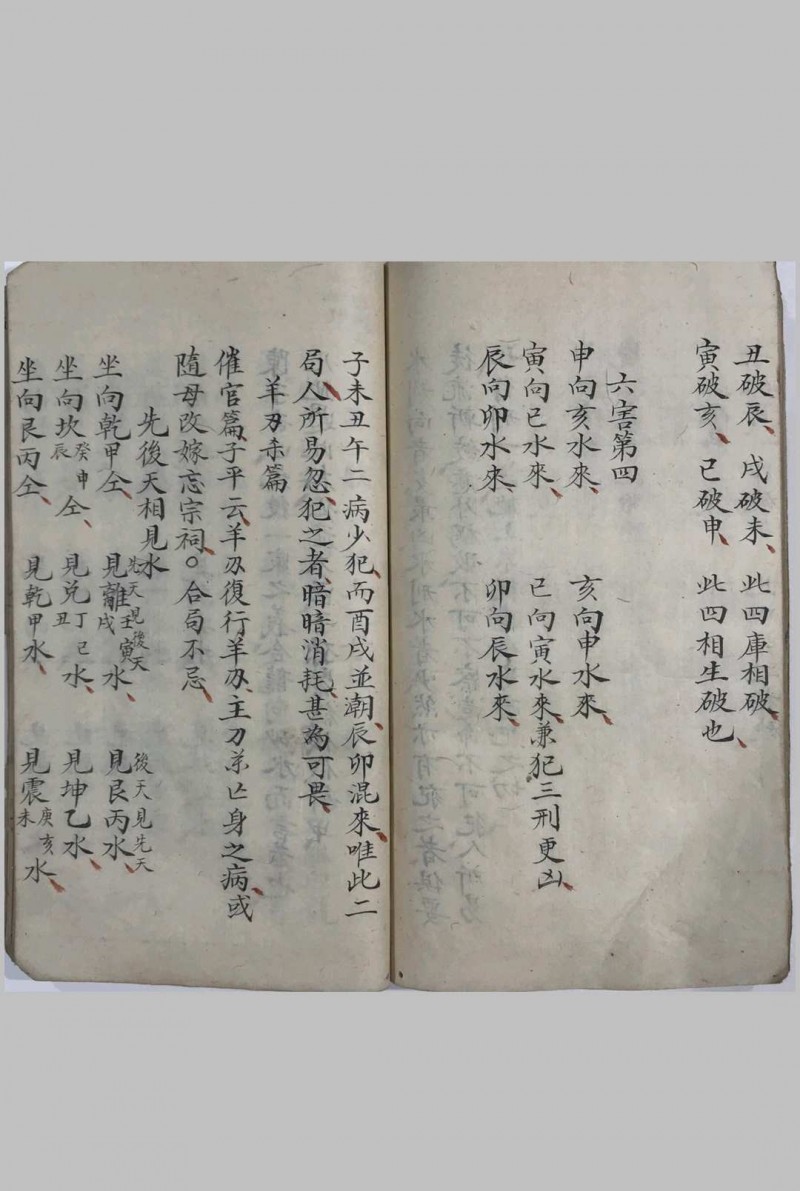 丑破辰、戌破未、此四庫相破、
寅破亥、巳破申、此四相生破也、
六害第四
申向亥水來、亥向申水來、
寅向巳水來、巳向寅水來、兼犯三刑更凶、
辰向卯水來、卯向辰水來、
子未丑午二病少犯、而酉戌並潮、辰卯混來、唯此二
局、人所易忽、犯之者、暗暗消耗、甚為可畏、
羊刃杀篇
催官篇、子平云、羊刃復行羊刃、主刀茶亡身之病、或
隨母改嫁忘宗祠。合局不忌、
先後天相見水
先天見後天
後天見先天
坐向乾甲仝、見離壬寅戌水、見艮丙水、
坐向坎癸申辰仝、見兌丁巳丑水、見坤乙水、
坐向艮丙仝、見乾甲水、見震庚亥未水、